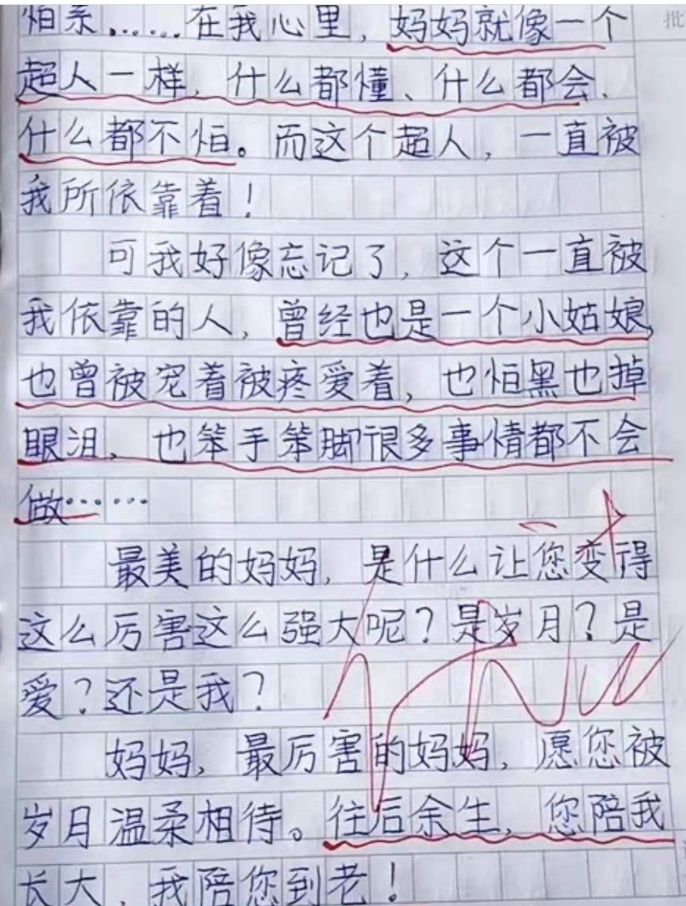 怕紊……在我心里，妈妈就像一个
超人一样，什么都懂、什么都会、
什么都不怕。而这个超人，一直被
我所依靠着！
可我好像忘记了，这个一直被
我依靠的人，曾经也是一个小姑娘，
也曾被宠着被疼爱着，也怕黑也掉
眼泪，也笨手笨脚很多事情都不会
做……
最美的妈妈，是什么让您变得
这么厉害这么强大呢？是岁月？是
爱？还是我？
妈妈，最厉害的妈妈，愿您被
岁月温柔相待。往后余生，您陪我
长大，我陪您到老！
批